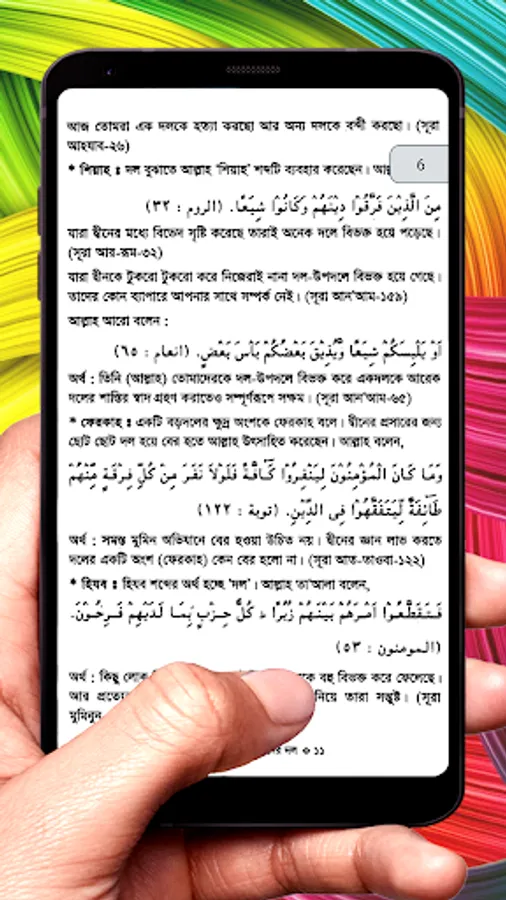 আজ তোমরা এক দলকে হত্যা করছো আর অন্য দলকে বন্দী করছো। (সূরা
আহযাব-২৬)
* শিয়াহ : দল বুঝাতে আল্লাহ 'শিয়াহ' শব্দটি ব্যবহার করেছেন।
6
مِنَ الَّذِيْنَ فَرَّقُوْا دِيْنَهُمْ وَكَانُوْا شِيَعًا. (الروم : ٣٢)
যারা দ্বীনের মধ্যে বিভেদ সৃষ্টি করেছে তারাই অনেক দলে বিভক্ত হয়ে পড়েছে।
(সূরা আর-রূম-৩২)
যারা দ্বীনকে টুকরো টুকরো করে নিজেরাই নানা দল-উপদলে বিভক্ত হয়ে গেছে।
তাদের কোন ব্যাপারে আপনার সাথে সম্পর্ক নেই। (সূরা আন'আম-১৫৯)
আল্লাহ আরো বলেন :
اَوْ يَلْبِسَكُمْ شِيَعًا وَّيُذِيْقَ بَعْضَكُمْ بَأْسَ بَعْضٍ. (انعام : ٦٥)
অর্থ : তিনি (আল্লাহ) তোমাদেরকে দল-উপদলে বিভক্ত করে একদলকে আরেক
দলের শাস্তির স্বাদ গ্রহণ করাতেও সম্পূর্ণরূপে সক্ষম। (সূরা আন'আম-৬৫)
* ফেরকাহ : একটি বড়দলের ক্ষুদ্র অংশকে ফেরকাহ বলে। দ্বীনের প্রসারের জন্য
ছোট ছোট দল হয়ে বের হতে আল্লাহ উৎসাহিত করেছেন। আল্লাহ বলেন,
وَمَا كَانَ الْمُؤْمِنُوْنَ لِيَنْفِرُوْا كَآفَّةً فَلَوْلَا نَفَرَ مِنْ كُلِّ فِرْقَةٍ مِّنْهُمْ
طَآئِفَةٌ لِّيَتَفَقَّهُوْا فِى الدِّيْنِ. (توبة : ١٢٢)
অর্থ : সমস্ত মুমিন অভিযানে বের হওয়া উচিত নয়। দ্বীনের জ্ঞান লাভ করতে
দলের একটি অংশ (ফেরকাহ) কেন বের হলো না। (সূরা আত-তাওবা-১২২)
* হিযব : হিযব শব্দের অর্থ হচ্ছে 'দল'। আল্লাহ তা'আলা বলেন,
فَتَقَطَّعُوْا اَمْرَهُمْ بَيْنَهُمْ زُبُرًا ؞ كُلُّ حِزْبٍ بِمَا لَدَيْهِمْ فَرِحُوْنَ.
(المومنون : ٥٣)
অর্থ : কিছু লোক কে বহু বিভক্ত করে ফেলেছে।
আর নিয়ে তারা সন্তুষ্ট। (সূরা
মুমিনুন
দল ❖ ১১